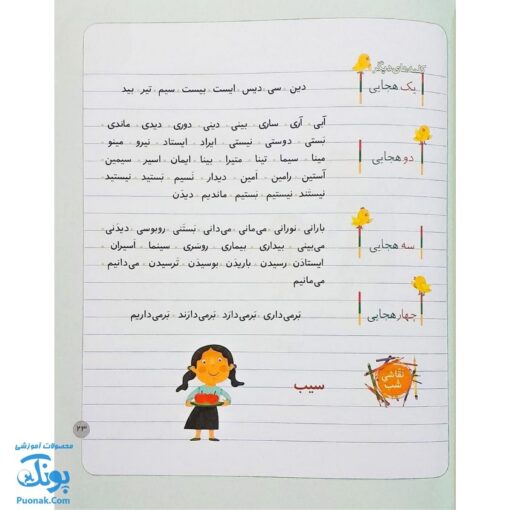 کلمه‌های دیگر
یک هجایی
دین سی دیس ایست بیست سیم تیر بید
دو هجایی
آبی آری ساری بینی دینی دوری دیدی ماندی
بَستی دوستی نیستی ایراد ایستاد نیرو مینو
مینا سیما تینا متیرا بینا ایمان اسیر سیمین
آستین رامین اَمین دیدار نَسیم بَستید نیستید
نیستند نیستیم بَستیم ماندیم دیدَن
سه هجایی
بارانی نورانی می‌مانی می‌دانی بَستَنی روبوسی دیدَنی
می‌بینی بیداری بیماری روسَری سینما اَسیران
ایستادَن رسیدن باریدَن بوسیدَن تَرسیدَن می‌دانیم
می‌مانیم
چهار هجایی
بَرمی‌داری بَرمی‌دارَد بَرمی‌دارَند بَرمی‌داریم
نقاشی
شب
سیب
۲۳
محصولات آموزشی
پونک
Puonak.Com